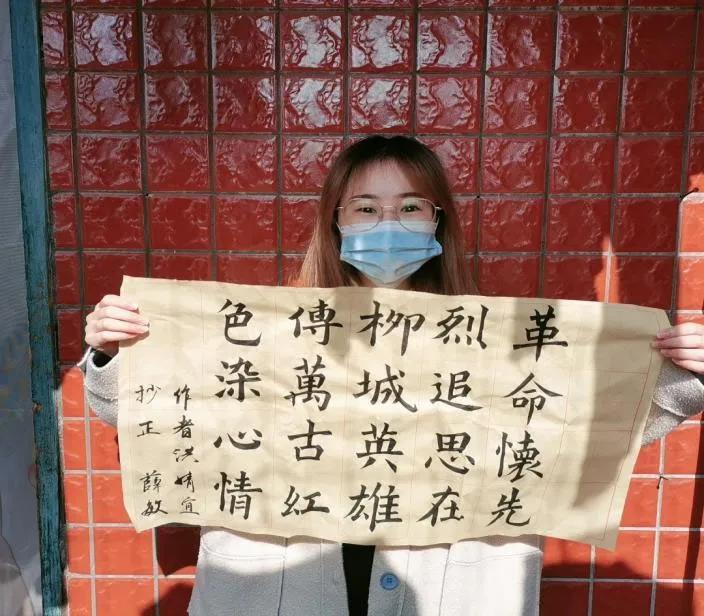 革命懷先
烈追思在
柳城英雄
傳萬古紅
色染心情
作者洪婧宜
抄正 薛敏